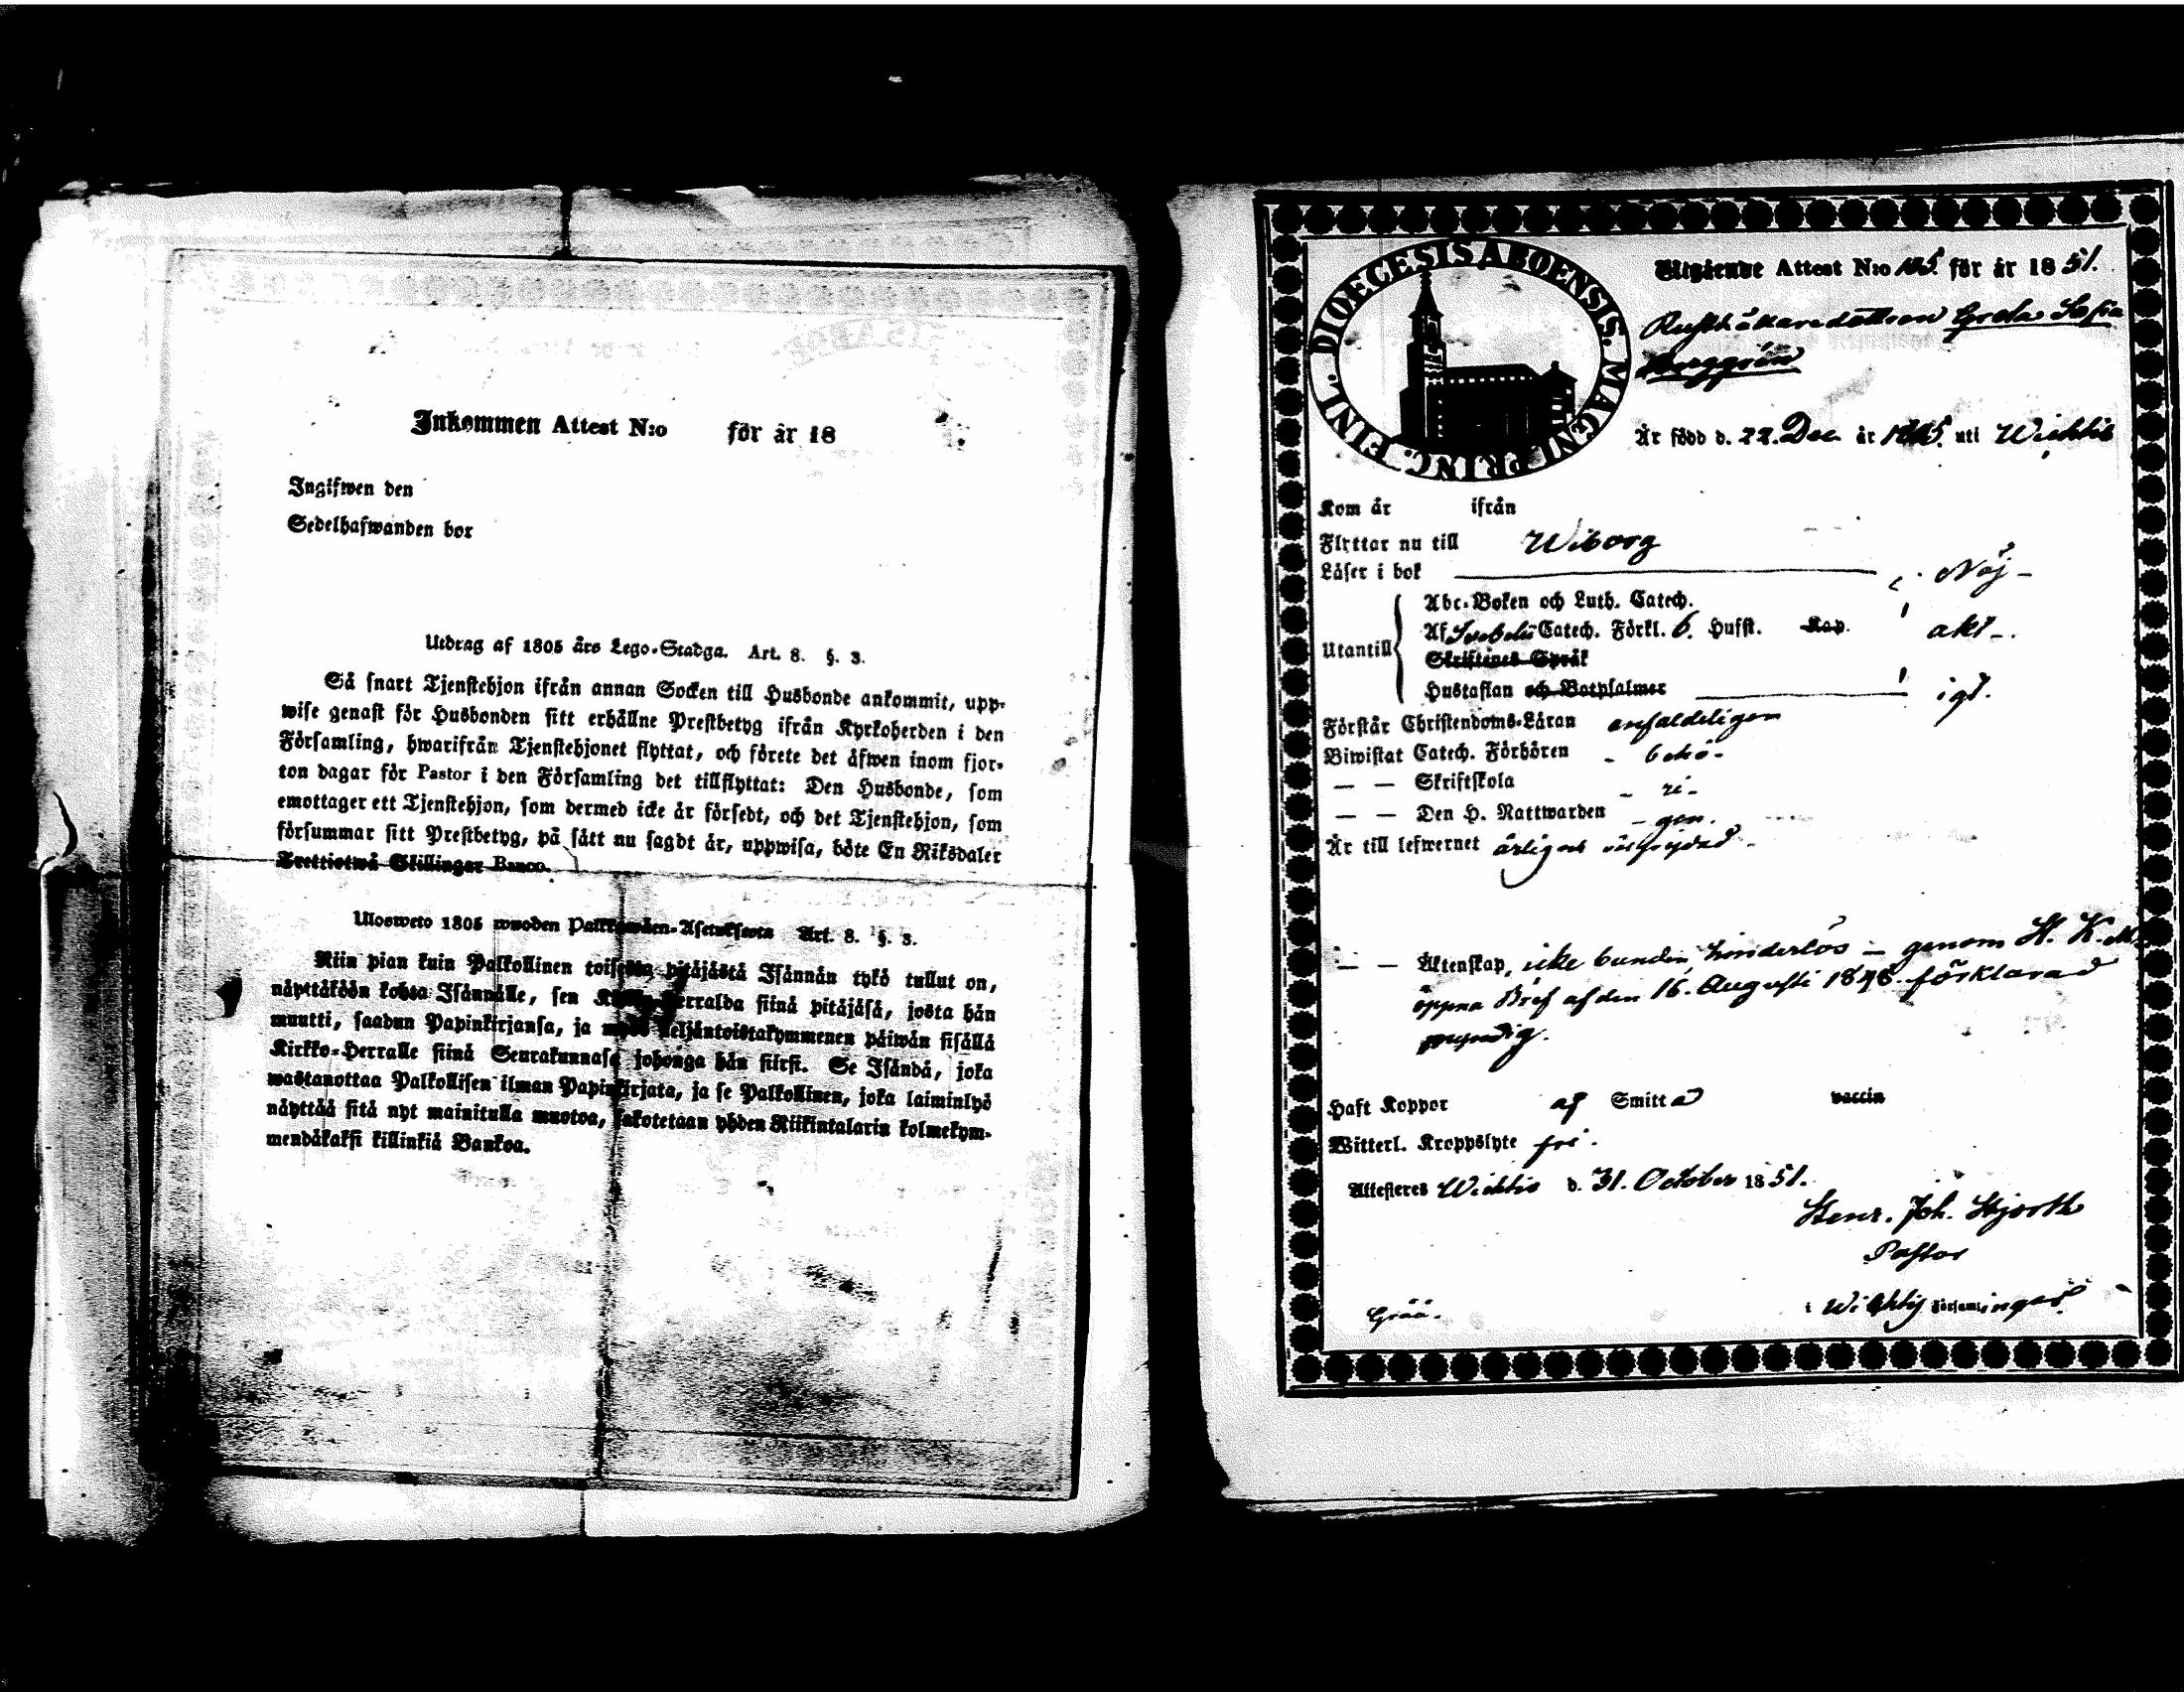 Inkommen Attest N:o för år 18
Ingifwen den
Sedelhafwanden bor
Utdrag af 1805 års Lego-Stadga. Art. 8. §. 3.
Så snart Tjenstehjon ifrån annan Socken till Husbonde ankommit, upp-
wise genast för Husbonden sitt erhållne Prestbetyg ifrån Kyrkoherden i den
Församling, hwarifrån Tjenstehjonet flyttat, och förete det äfwen inom fjor-
ton dagar för Pastor i den Församling det tillflyttat: Den Husbonde, som
emottager ett Tjenstehjon, som dermed icke är försedt, och det Tjenstehjon, som
försummar sitt Prestbetyg, på sätt nu sagdt är, uppwisa, böte En Riksdaler
Trettiotwå Skillingar Banco.
Ulosweto 1805 wuoden Palkkawäen-Asetuksesta Art. 8. §. 3.
Niin pian kuin Palkollinen toisesta pitäjästä Isännän tykö tullut on,
näyttäköön kohta Isännälle, sen Kirkko-Herralda siinä pitäjäsä, josta hän
muutti, saadun Papinkirjansa, ja myös neljäntoistakymmenen päiwän sisällä
Kirkko-Herralle siinä Seurakunnasa johonga hän siirsi. Se Isändä, joka
wastanottaa Palkollisen ilman Papinkirjata, ja se Palkollinen, joka laiminlyö
näyttää sitä nyt mainitulla muotoa, sakotetaan yhden Riikintalarin kolmekym-
mendäkaksi killinkiä Bankoa.
FINL. DIOECESIS ABOENSIS. MAGNI PRINC.
Utgående Attest N:o för år 1851.
Rusthållaredottren Greta Sofia
Är född d. 22. Dec. år uti Wichtis
Kom år ifrån
Flyttar nu till Wiborg
Läser i bok Nöj-
Abc-Boken och Luth. Catech.
Utantill Af Svebelii Catech. Förkl. 6. Husst. Kap. akt-
Skriftenes Språk
Hustaflan och Botpsalmer igt.
Förstår Christendoms-Läran enfaldeligen
Biwistat Catech. Förhören - behö-
— — Skriftskola - ri-
— — Den H. Nattwarden - gen.
Är till lefwernet ärlig och välfrejdad
— — Äktenskap, icke bunden, hinderlös — genom H. K. M.
öppna Bref af den 16. Augusti 1848 förklarad
myndig.
Haft Koppor af Smitta vaccin
Witterl. Kroppslyte fri.
Attesteres Wichtis d. 31. October 1851.
Henr. Joh. Hjorth
Pastor
i Wichtis Församlingar.
Gråå.